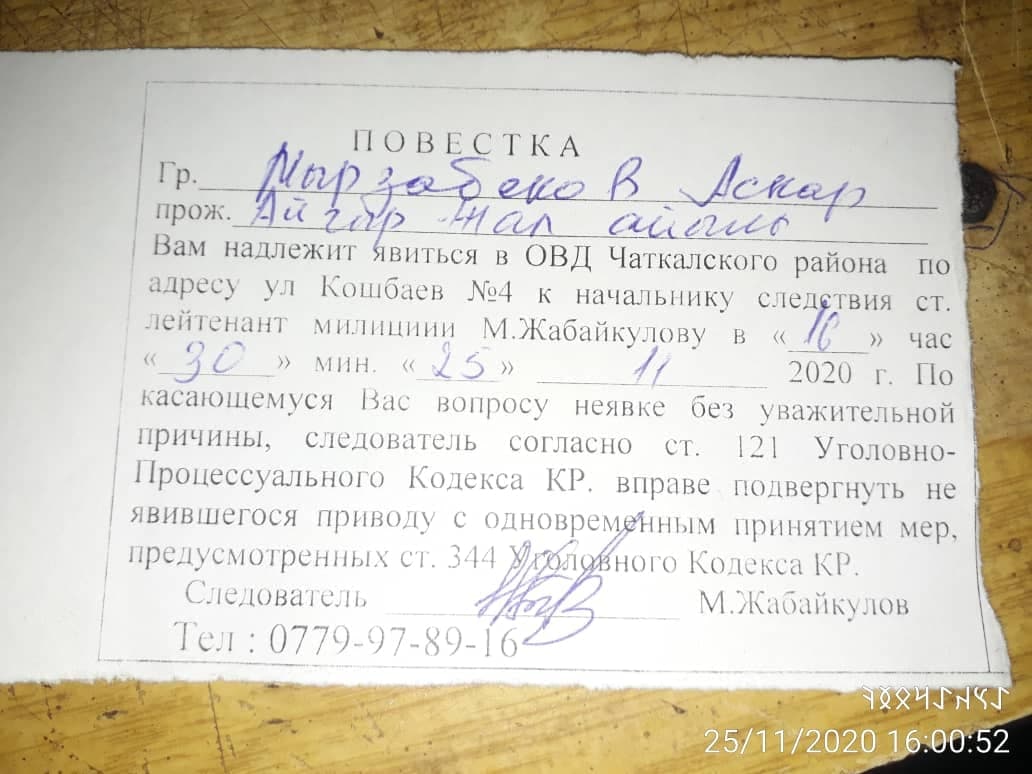 ПОВЕСТКА
Гр. Мырзабеков Аскар
прож. Айгыр-Жал айылы
Вам надлежит явиться в ОВД Чаткалского района по
адресу ул Кошбаев №4 к начальнику следствия ст.
лейтенант милициии М.Жабайкулову в « 16 » час
« 30 » мин. « 25 » 11 2020 г. По
касающемуся Вас вопросу неявке без уважительной
причины, следователь согласно ст. 121 Уголовно-
Процессуального Кодекса КР. вправе подвергнуть не
явившегося приводу с одновременным принятием мер,
предусмотренных ст. 344 Уголовного Кодекса КР.
Следователь М.Жабайкулов
Тел : 0779-97-89-16
25/11/2020 16:00:52